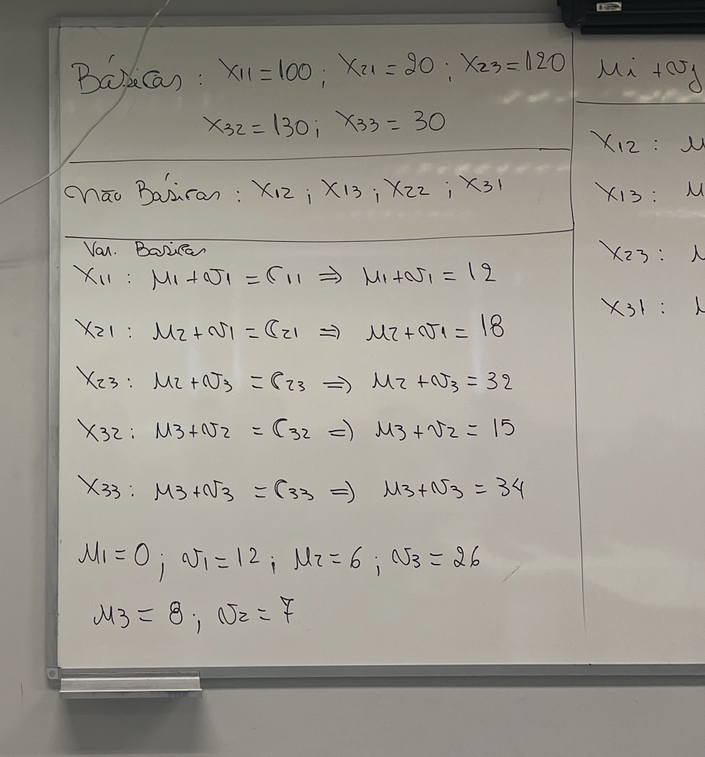 Básicas : X11 = 100 ; X21 = 20 ; X23 = 120
X32 = 130 ; X33 = 30
Não Básicas : X12 ; X13 ; X22 ; X31
Var. Basicas
X11 : μ1 + v1 = C11 ⇒ μ1 + v1 = 12
X21 : μ2 + v1 = C21 ⇒ μ2 + v1 = 18
X23 : μ2 + v3 = C23 ⇒ μ2 + v3 = 32
X32 : μ3 + v2 = C32 ⇒ μ3 + v2 = 15
X33 : μ3 + v3 = C33 ⇒ μ3 + v3 = 34
μ1 = 0 ; v1 = 12 ; μ2 = 6 ; v3 = 26
μ3 = 8 ; v2 = 7
μi + vj
X12 : μ
X13 : μ
X23 : μ
X31 : μ